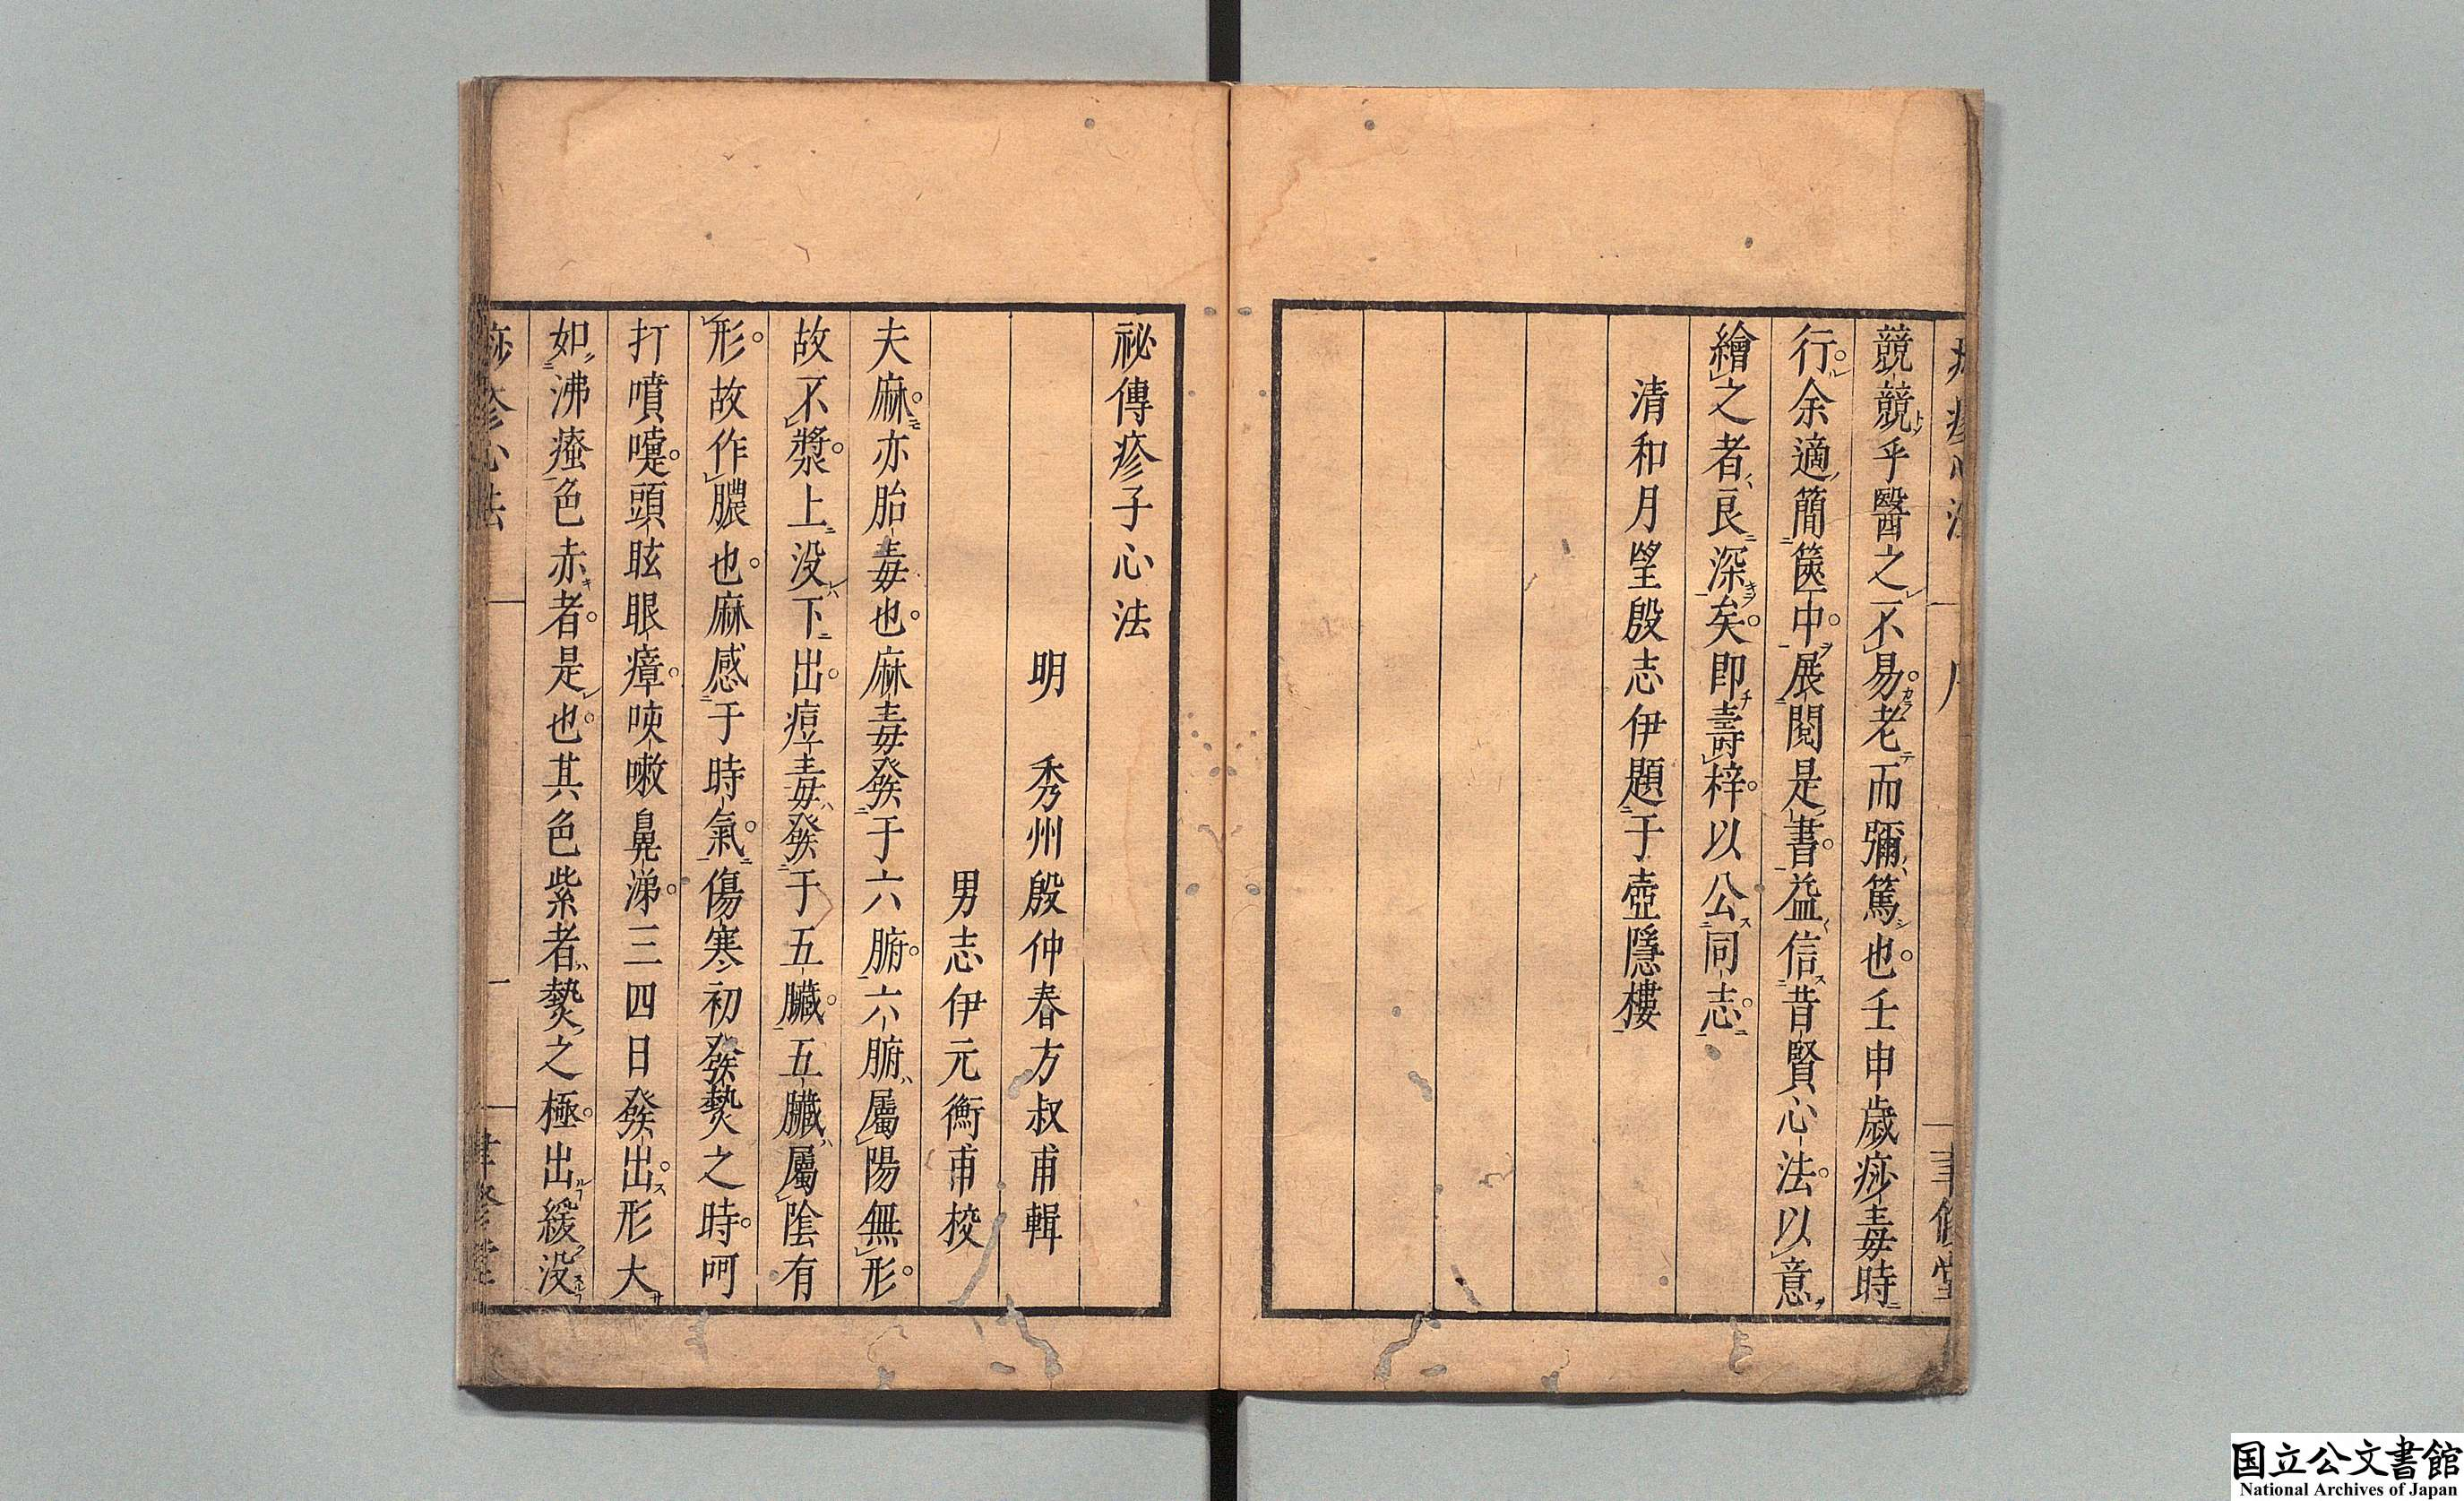 競競乎醫之不易老而彌篤也壬申歲痧毒時
行余適簡篋中展閱是書益信昔賢心法以意
繪之者良深矣即壽梓以公同志
清和月望殷志伊題于壺隱樓
祕傳疹子心法
明　秀州殷仲春方叔甫輯
男志伊元衡甫校
夫麻亦胎毒也麻毒發于六腑六腑屬陽無形
故不漿上没下出痘毒發于五臟五臟屬陰有
形故作膿也麻感于時氣傷寒初發𤍠之時呵
打噴嚏頭眩眼瘴咳嗽鼻涕三四日發出形大
如沸瘙色赤者是也其色紫者𤍠之極出緩没
痧疹心法
一
聿修堂
国立公文書館
National Archives of Japan